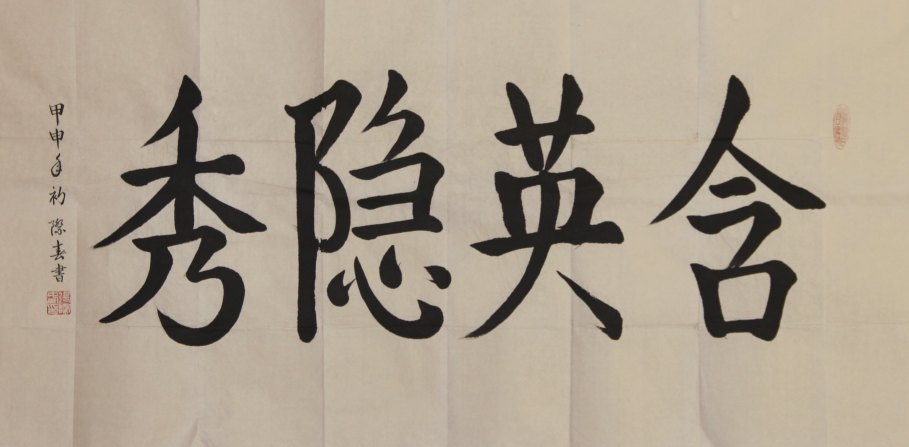 含英隐秀
甲申年初 际春書